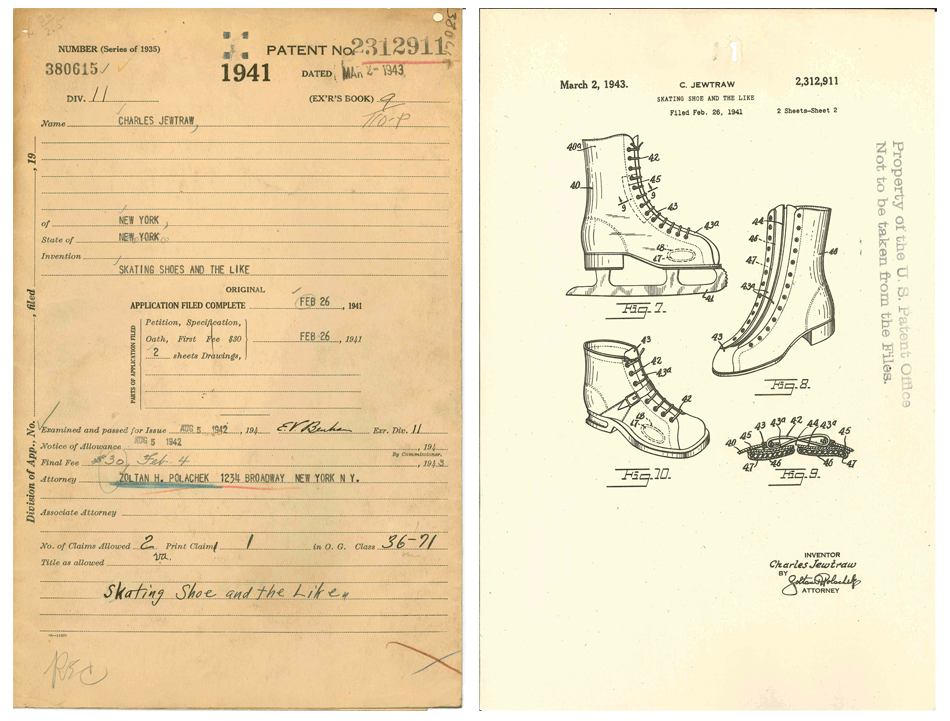 NUMBER (Series of 1935)
380615
1941
PATENT No. 2312911
DATED MAR 2-1943
DIV. 11
(EX'R'S BOOK) 9
Name CHARLES JEWTRAW,
110-P
of NEW YORK,
State of NEW YORK
Invention
SKATING SHOES AND THE LIKE
ORIGINAL
APPLICATION FILED COMPLETE FEB 26, 1941
PARTS OF APPLICATION FILED
Petition, Specification,
Oath, First Fee $30 FEB 26, 1941
2 sheets Drawings,
Examined and passed for Issue AUG 5 1942, 194 Exr. Div. 11
Notice of Allowance AUG 5 1942, 194
By Commissioner.
Final Fee $30 Feb 4, 1943
Attorney ZOLTAN H. POLACHEK 1234 BROADWAY NEW YORK N Y.
Associate Attorney
No. of Claims Allowed 2 Print Claim 1 in O. G. Class 36-71
Title as allowed
Skating Shoe and the Like
REC
Division of App., No. , filed , 19
March 2, 1943. C. JEWTRAW 2,312,911
SKATING SHOE AND THE LIKE
Filed Feb. 26, 1941 2 Sheets-Sheet 2
40a 42 45 40 9 9 43 43a 48 47 41
Fig. 7.
44 46 47 43a 43 46
Fig. 8.
43 42 43a 42 48 47
Fig. 10.
40 45 43 43a 42 44 45 47 46 46 47
Fig. 9.
Property of the U. S. Patent Office
Not to be taken from the Files.
INVENTOR
Charles Jewtraw
BY
Zoltan H. Polachek
ATTORNEY